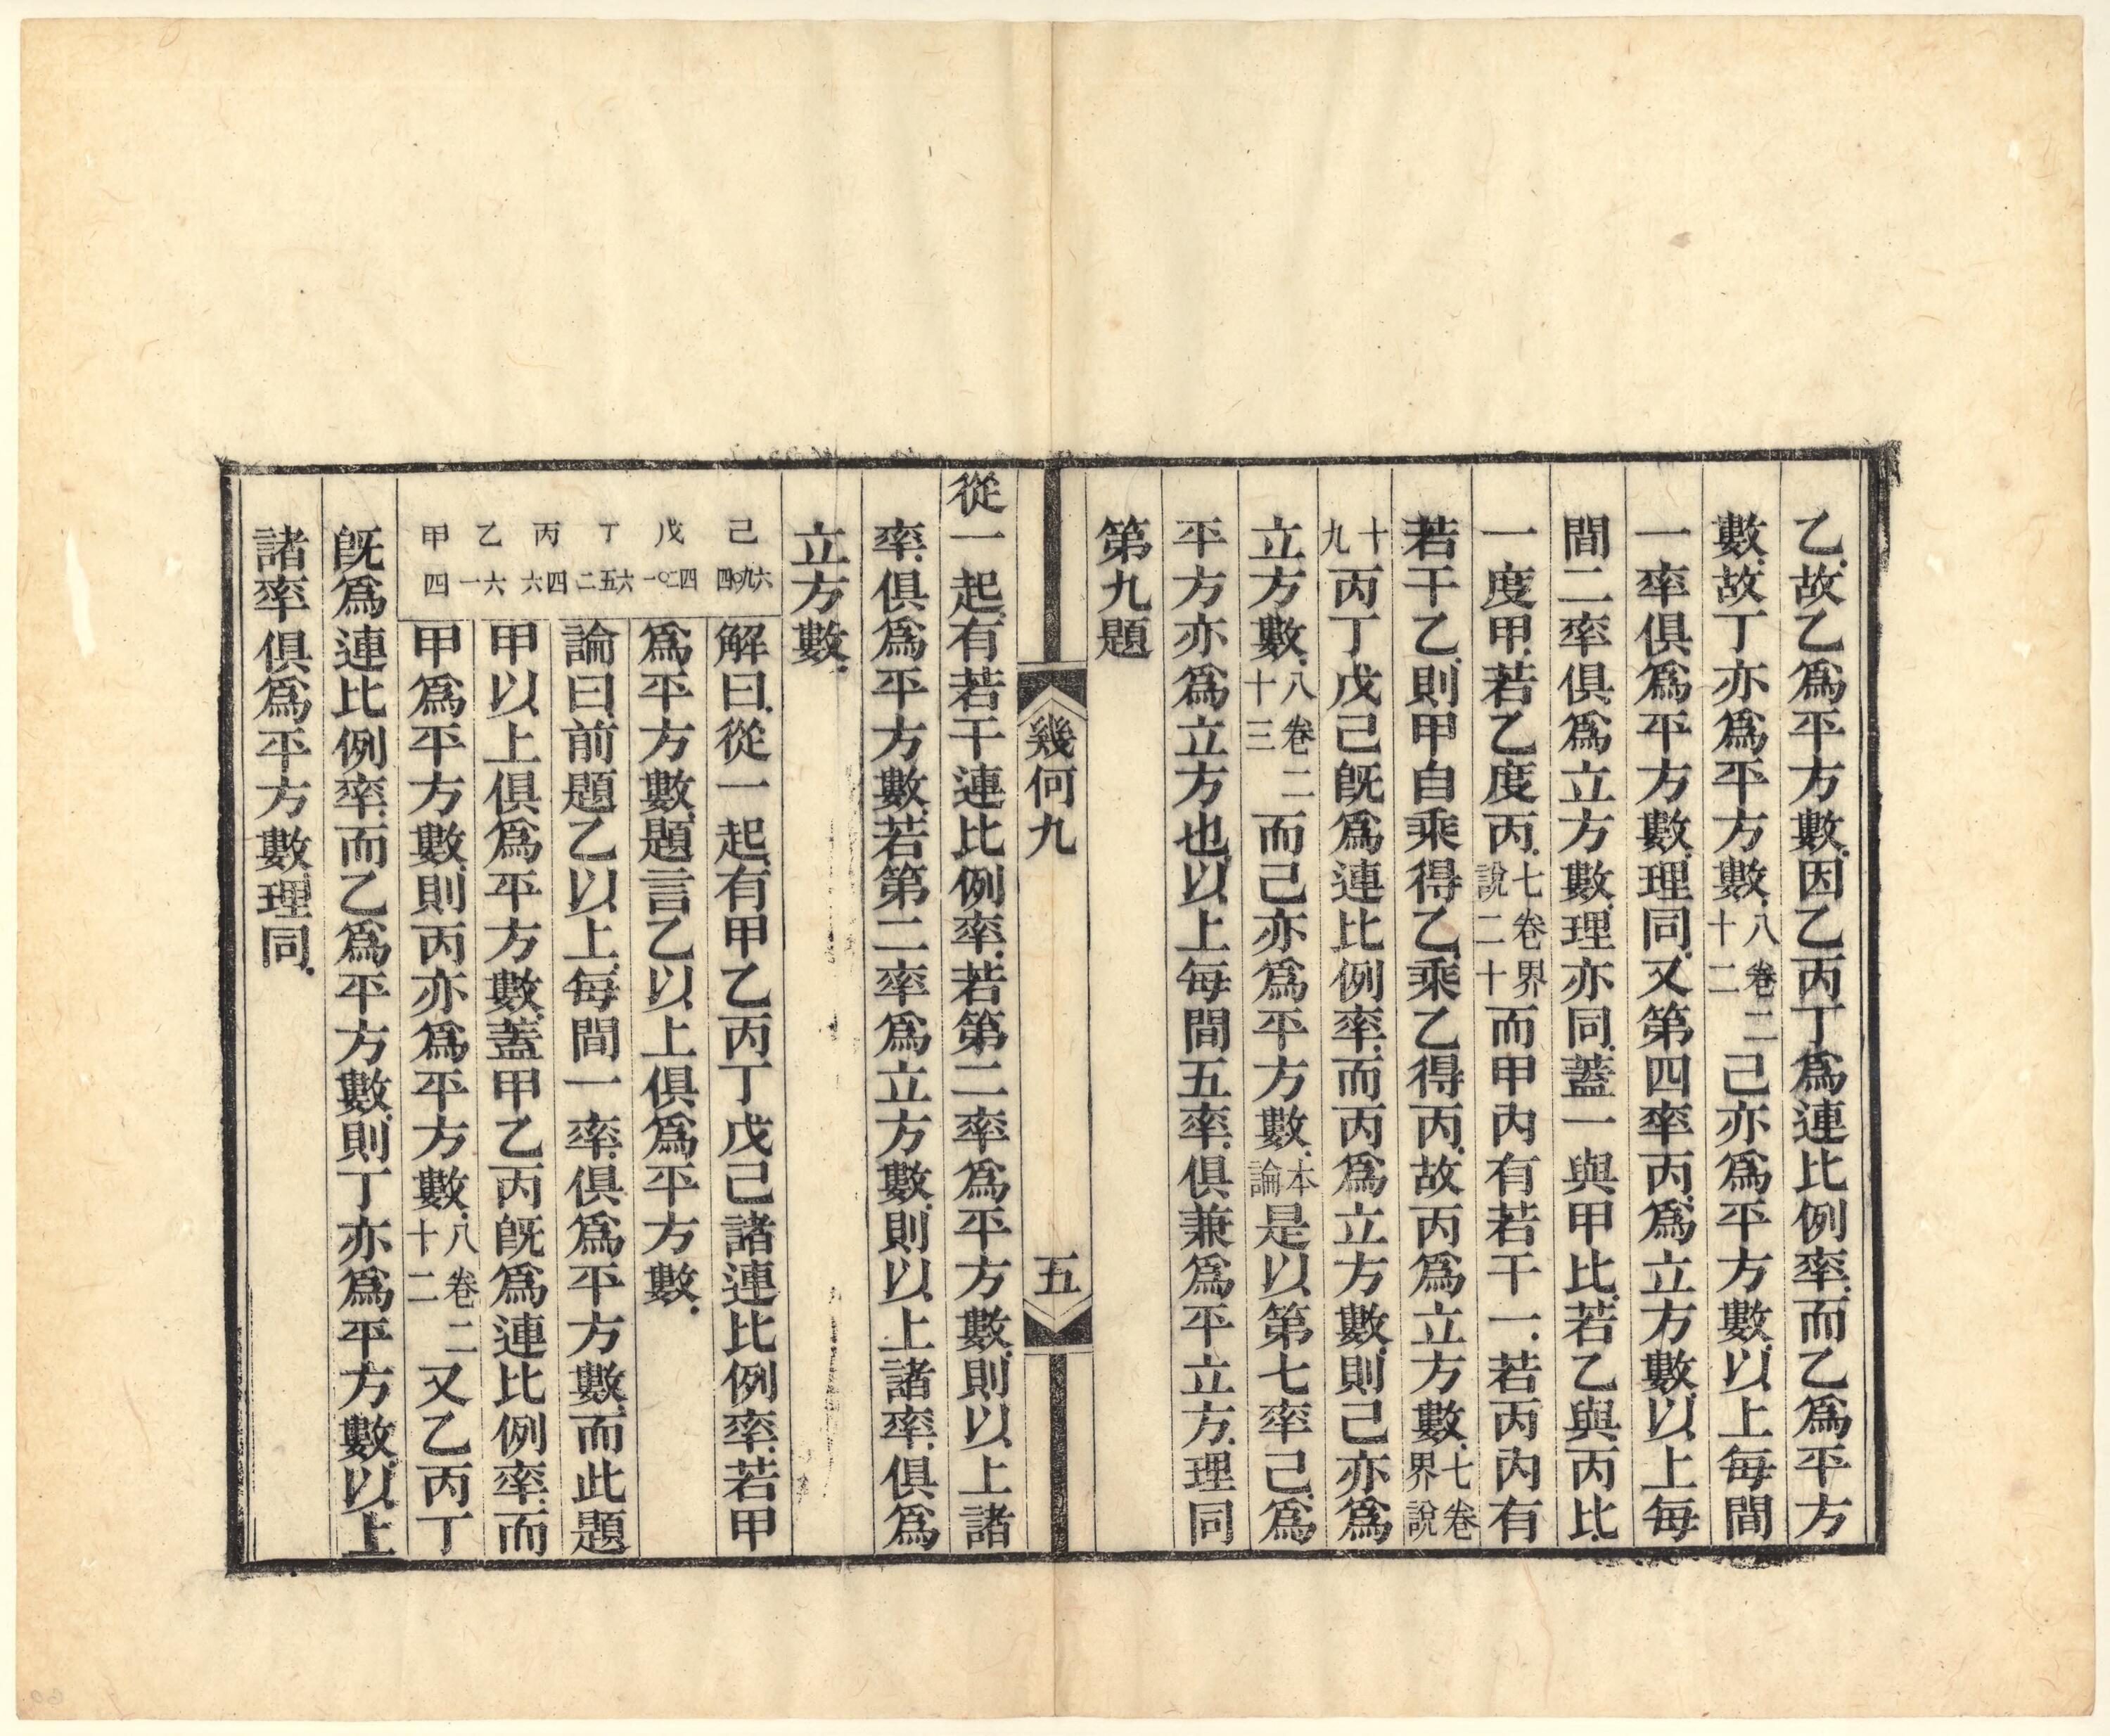 乙、故乙爲平方數、因乙丙丁爲連比例率、而乙爲平方
數、故丁亦爲平方數、八卷二十二己亦爲平方數、以上每間
一率俱爲平方數、理同、又第四率丙、爲立方數、以上每
間二率俱爲立方數、理亦同、蓋一與甲比、若乙與丙比、
一度甲、若乙度丙、七卷界說二十而甲內有若干一、若丙內有
若干乙、則甲自乘得乙、乘乙得丙、故丙爲立方數、七卷界說
十九丙丁戊己旣爲連比例率、而丙爲立方數、則己亦爲
立方數、八卷二十三而己亦爲平方數、本論是以第七率己、爲
平方亦爲立方也、以上每間五率、俱兼爲平立方、理同
第九題
幾何九
五
從一起、有若干連比例率、若第二率爲平方數、則以上諸
率、俱爲平方數、若第二率爲立方數、則以上諸率、俱爲
立方數、
己 四〇九六
戊 一〇二四
丁 二五六
丙 六四
乙 一六
甲 四
解曰、從一起、有甲乙丙丁戊己諸連比例率、若甲
爲平方數、題言乙以上俱爲平方數、
論曰、前題乙以上、每間一率、俱爲平方數、而此題
甲以上俱爲平方數、蓋甲乙丙旣爲連比例率、而
甲爲平方數、則丙亦爲平方數、八卷二十二又乙丙丁
旣爲連比例率、而乙爲平方數、則丁亦爲平方數、以上
諸率俱爲平方數、理同、